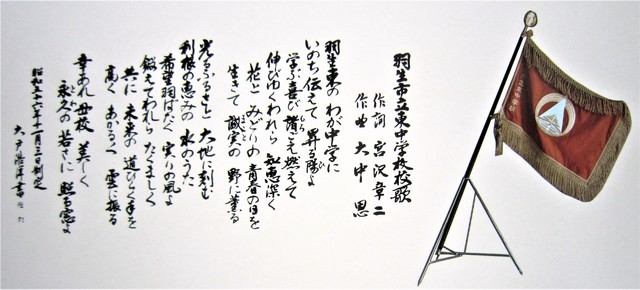 羽生市立東中学校校歌
作詞 宮沢章二
作曲 大中 恩
羽生東の わが中学に
いのち伝えて 昇る陽よ
学ぶ喜び 清く燃えて
伸びゆくわれら 知恵深く
花と みどりの 青春の日を
生きて 誠実の 野に薫る
光るふるさと 大地に刻む
利根の恵みの 水のうた
希望羽ばたく 実りの風よ
鍛えてわれら たくましく
共に 未来の 道ひらく手を
高く あかるく 雲に振る
幸あれ 母校 美しく
永久の 若さに 照る窓よ
昭和五十六年十一月三日制定